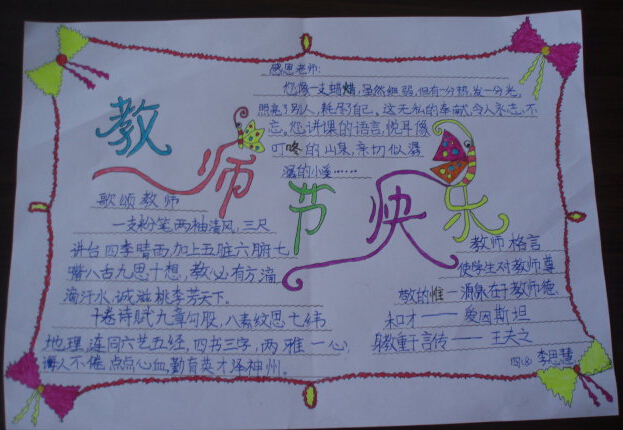 感恩老师:
您像一支蜡烛,虽然细弱,但有一分热,发一分光,
照亮了别人,耗尽了自己。这无私的奉献,令人永志不
忘。您讲课的语言,悦耳像
叮咚的山泉,亲切似潺
潺的小溪……
教师节快乐
歌颂教师
一支粉笔两袖清风,三尺
讲台四季晴雨,加上五脏六腑七
嘴八舌九思十想,教必有方滴
滴汗水,诚滋桃李芳天下。
十卷诗赋九章勾股,八索纹思七纬
地理,连同六艺五经,四书三字,两雅一心,
诲人不倦,点点心血,勤育英才泽神州。
教师格言
使学生对教师尊
敬的惟一源泉在于教师德
和才——爱因斯坦
身教重于言传——王夫之
李思慧